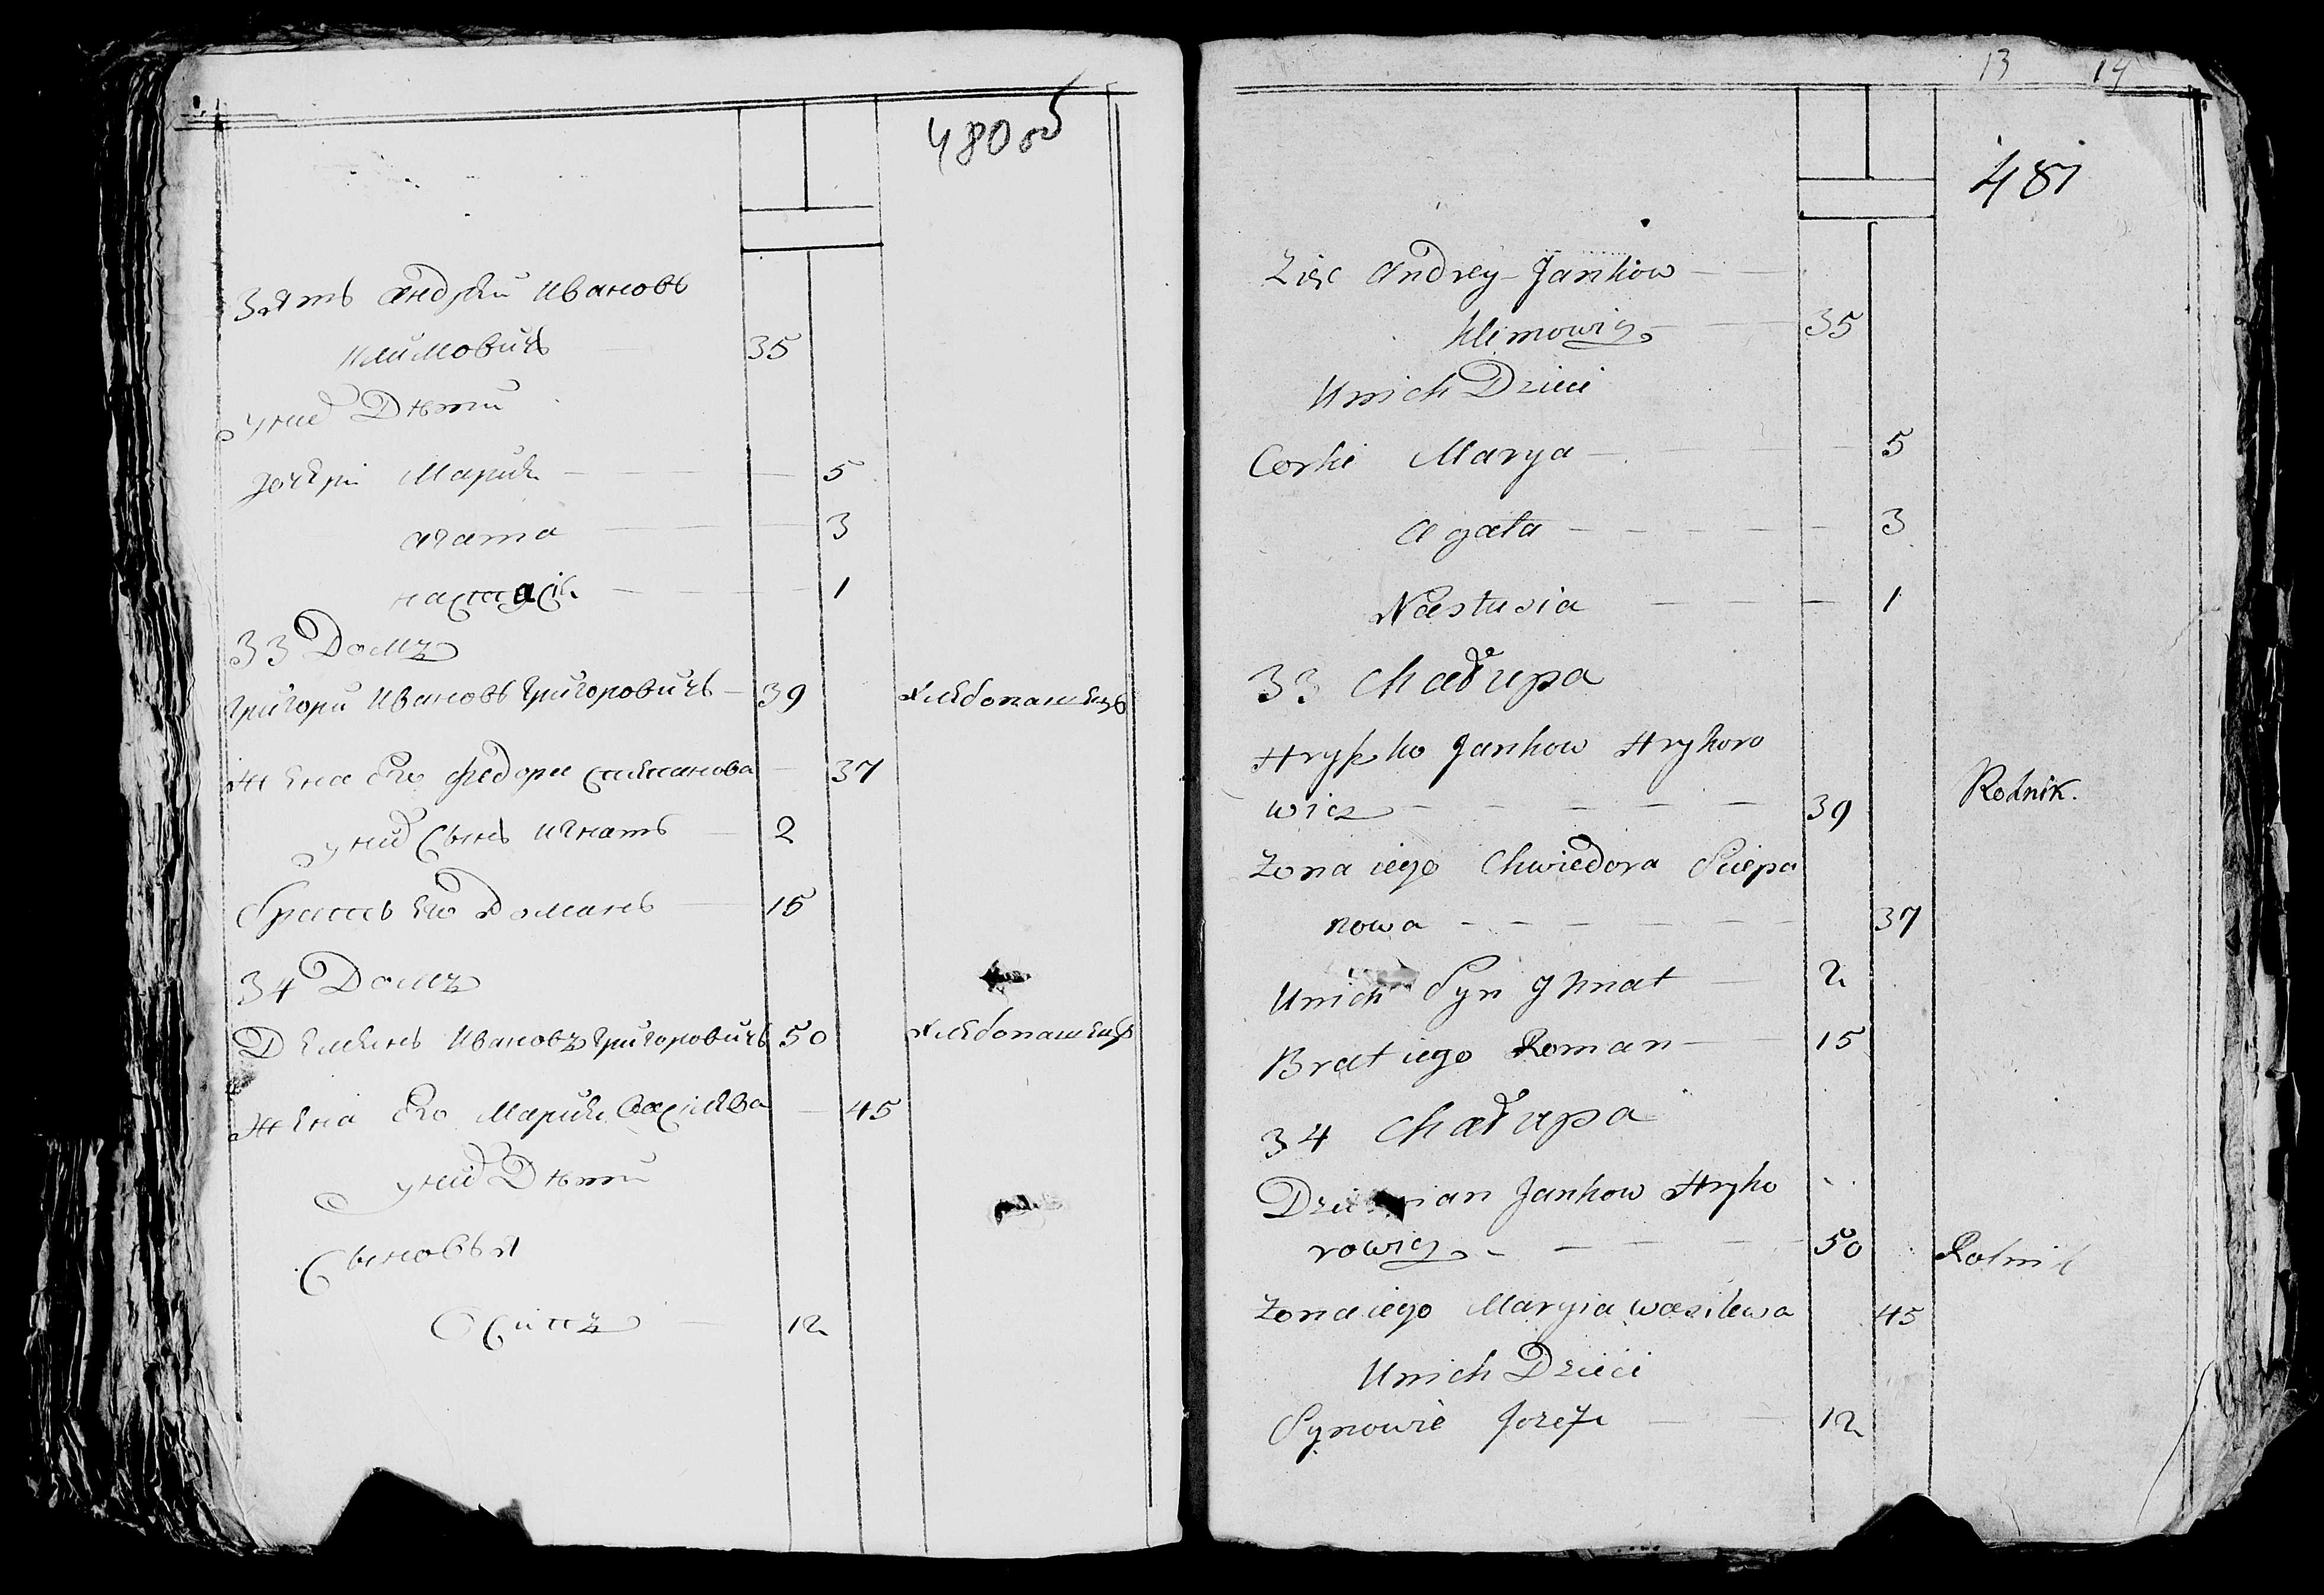 480 об
Зять Андрей Ивановъ
Климовичъ 35
у них Дѣти
дочери Мария 5
агата 3
настася 1
33 Домъ
Григори Ивановъ Григоровичъ 39 хлебопашецъ
жена Его федора степанова 37
у них Сынъ игнатъ 2
братъ его Романъ 15
34 Домъ
Демянъ Ивановъ Григоровичъ 50 хлебопашецъ
жена Его Мария Василева 45
у них Дѣти
Сыновья
Осипъ 12
13 14
481
Zięc Andrey Jankow
Klimowicz 35
Unich Dzieci
Corki Marya 5
Agata 3
Nastusia 1
33 Chałupa
Hryszko Jankow Hryhoro
wicz 39 Rolnik.
Zona iego Chwiedora Sciepa
nowa 37
Unich Syn Ihnat 2
Brat iego Roman 15
34 Chałupa
Jankow Hryho
rowicz 50 Rolnik
Zona iego Maryia Wasilewa 45
Unich Dzieci
Synowie Jozef 12